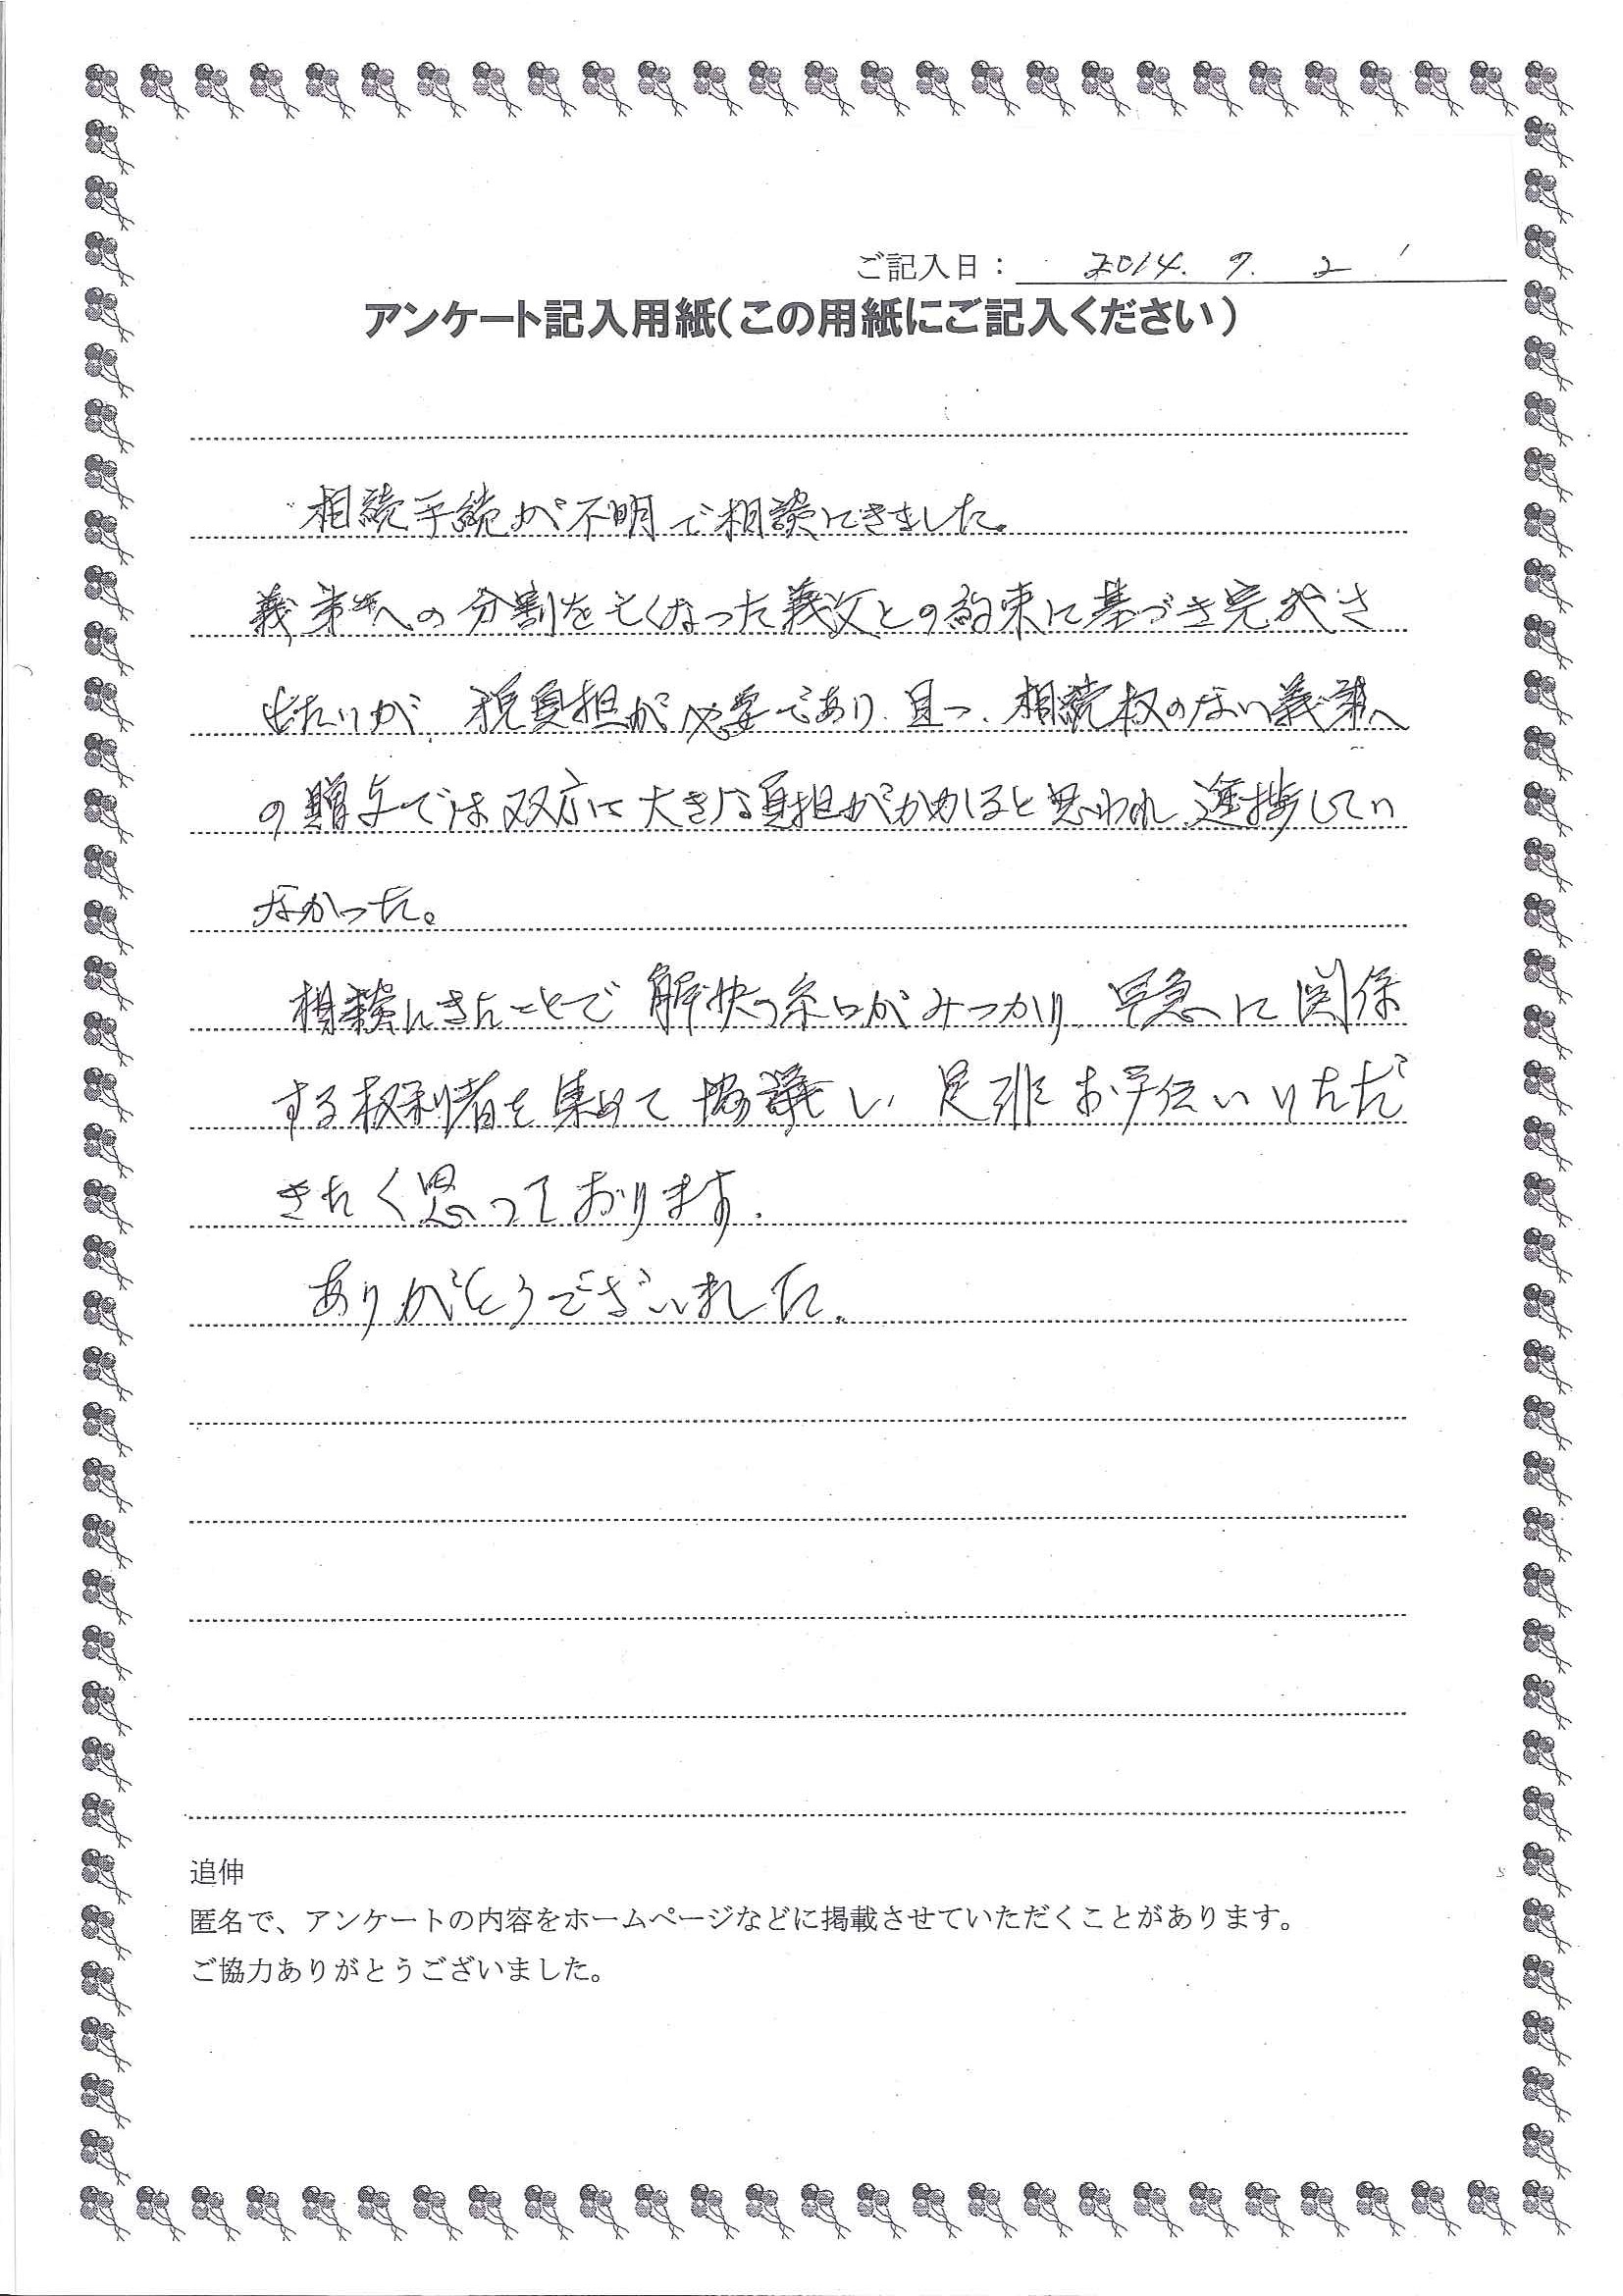 ご記入日： 2014. 9. 2
アンケート記入用紙（この用紙にご記入ください）
相続手続が不明で相談にきました。
義弟への分割を亡くなった義父との約束に基づき完成さ
せたいが、税負担が必要であり、且つ、相続権のない義弟へ
の贈与では双方に大きな負担がかかると思われ、進捗してい
なかった。
相談にきたことで解決の糸口がみつかり、早急に関係
する権利者を集めて協議し、是非お手伝いいただ
きたく思っております.
ありがとうございました.
追伸
匿名で、アンケートの内容をホームページなどに掲載させていただくことがあります。
ご協力ありがとうございました。